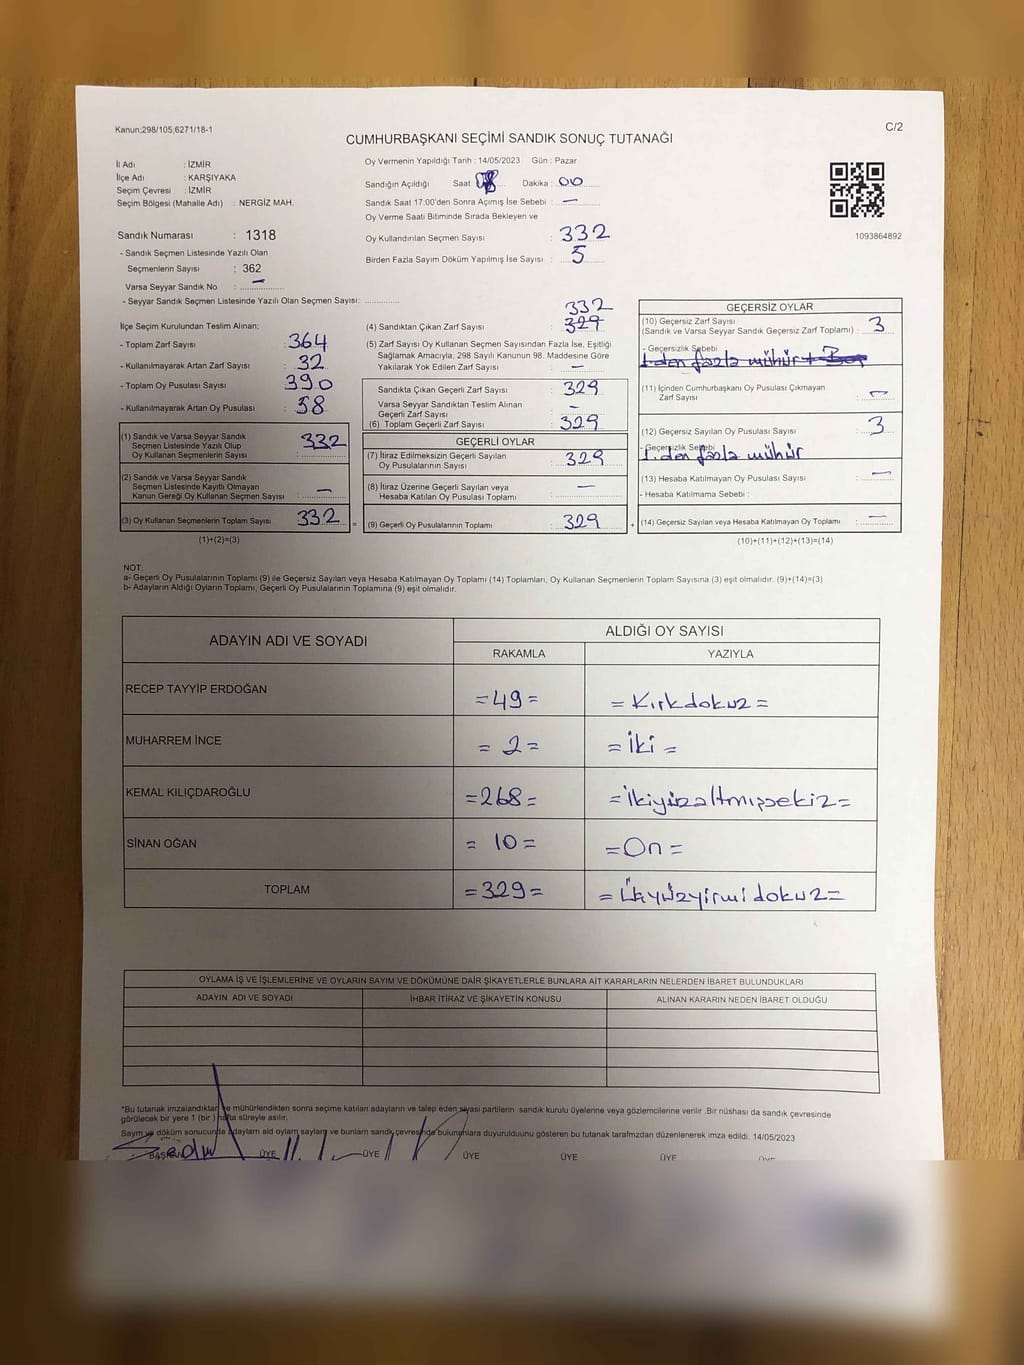 Kanun;298/105;6271/18-1
C/2
CUMHURBAŞKANI SEÇİMİ SANDIK SONUÇ TUTANAĞI
İl Adı : İZMİR
İlçe Adı : KARŞIYAKA
Seçim Çevresi : İZMİR
Seçim Bölgesi (Mahalle Adı) : NERGİZ MAH.
Oy Vermenin Yapıldığı Tarih : 14/05/2023 Gün : Pazar
Sandığın Açıldığı Saat Dakika : 00
Sandık Saat 17:00'den Sonra Açımış İse Sebebi : —
Oy Verme Saati Bitiminde Sırada Bekleyen ve
Oy Kullandırılan Seçmen Sayısı : 332
Birden Fazla Sayım Döküm Yapılmış İse Sayısı : 5
1093864892
Sandık Numarası : 1318
- Sandık Seçmen Listesinde Yazılı Olan
Seçmenlerin Sayısı : 362
Varsa Seyyar Sandık No : —
- Seyyar Sandık Seçmen Listesinde Yazılı Olan Seçmen Sayısı: ..............
İlçe Seçim Kurulundan Teslim Alınan;
- Toplam Zarf Sayısı : 364
- Kullanılmayarak Artan Zarf Sayısı : 32
- Toplam Oy Pusulası Sayısı : 390
- Kullanılmayarak Artan Oy Pusulası : 58
(1) Sandık ve Varsa Seyyar Sandık
Seçmen Listesinde Yazılı Olup
Oy Kullanan Seçmenlerin Sayısı : 332
(2) Sandık ve Varsa Seyyar Sandık
Seçmen Listesinde Kayıtlı Olmayan
Kanun Gereği Oy Kullanan Seçmen Sayısı : —
(3) Oy Kullanan Seçmenlerin Toplam Sayısı : 332 =
(1)+(2)=(3)
332
(4) Sandıktan Çıkan Zarf Sayısı : 329
(5) Zarf Sayısı Oy Kullanan Seçmen Sayısından Fazla İse, Eşitliği
Sağlamak Amacıyla; 298 Sayılı Kanunun 98. Maddesine Göre
Yakılarak Yok Edilen Zarf Sayısı : —
Sandıkta Çıkan Geçerli Zarf Sayısı : 329
Varsa Seyyar Sandıktan Teslim Alınan
Geçerli Zarf Sayısı : —
(6) Toplam Geçerli Zarf Sayısı : 329
GEÇERLİ OYLAR
(7) İtiraz Edilmeksizin Geçerli Sayılan
Oy Pusulalarının Sayısı : 329
(8) İtiraz Üzerine Geçerli Sayılan veya
Hesaba Katılan Oy Pusulası Toplamı : —
(9) Geçerli Oy Pusulalarının Toplamı : 329 +
GEÇERSİZ OYLAR
(10) Geçersiz Zarf Sayısı
(Sandık ve Varsa Seyyar Sandık Geçersiz Zarf Toplamı) : 3
- Geçersizlik Sebebi
1.den fazla mühür + Boş
(11) İçinden Cumhurbaşkanı Oy Pusulası Çıkmayan
Zarf Sayısı : —
(12) Geçersiz Sayılan Oy Pusulası Sayısı : 3
- Geçersizlik Sebebi
1.den fazla mühür
(13) Hesaba Katılmayan Oy Pusulası Sayısı : —
- Hesaba Katılmama Sebebi :
(14) Geçersiz Sayılan veya Hesaba Katılmayan Oy Toplamı : —
(10)+(11)+(12)+(13)=(14)
NOT:
a- Geçerli Oy Pusulalarının Toplamı (9) ile Geçersiz Sayılan veya Hesaba Katılmayan Oy Toplamı (14) Toplamları, Oy Kullanan Seçmenlerin Toplam Sayısına (3) eşit olmalıdır. (9)+(14)=(3)
b- Adayların Aldığı Oyların Toplamı, Geçerli Oy Pusulalarının Toplamına (9) eşit olmalıdır.
ADAYIN ADI VE SOYADI ALDIĞI OY SAYISI
RAKAMLA YAZIYLA
RECEP TAYYİP ERDOĞAN =49= =Kırkdokuz=
MUHARREM İNCE =2= =İki=
KEMAL KILIÇDAROĞLU =268= =İkiyüzaltmışsekiz=
SİNAN OĞAN =10= =On=
TOPLAM =329= =Üçyüzyirmidokuz=
OYLAMA İŞ VE İŞLEMLERİNE VE OYLARIN SAYIM VE DÖKÜMÜNE DAİR ŞİKAYETLERLE BUNLARA AİT KARARLARIN NELERDEN İBARET BULUNDUKLARI
ADAYIN ADI VE SOYADI İHBAR İTİRAZ VE ŞİKAYETİN KONUSU ALINAN KARARIN NEDEN İBARET OLDUĞU
*Bu tutanak imzalandıktan ve mühürlendikten sonra seçime katılan adayların ve talep eden siyasi partilerin sandık kurulu üyelerine veya gözlemcilerine verilir .Bir nüshası da sandık çevresinde
görülecek bir yere 1 (bir ) hafta süreyle asılır.
Sayım ve döküm sonucunda adayların ald oyların sayları ve bunların sandık çevresinde bulunanlara duyurulduunu gösteren bu tutanak tarafmzdan düzenlenerek imza edildi. 14/05/2023
BAŞKAN ÜYE ÜYE ÜYE ÜYE ÜYE